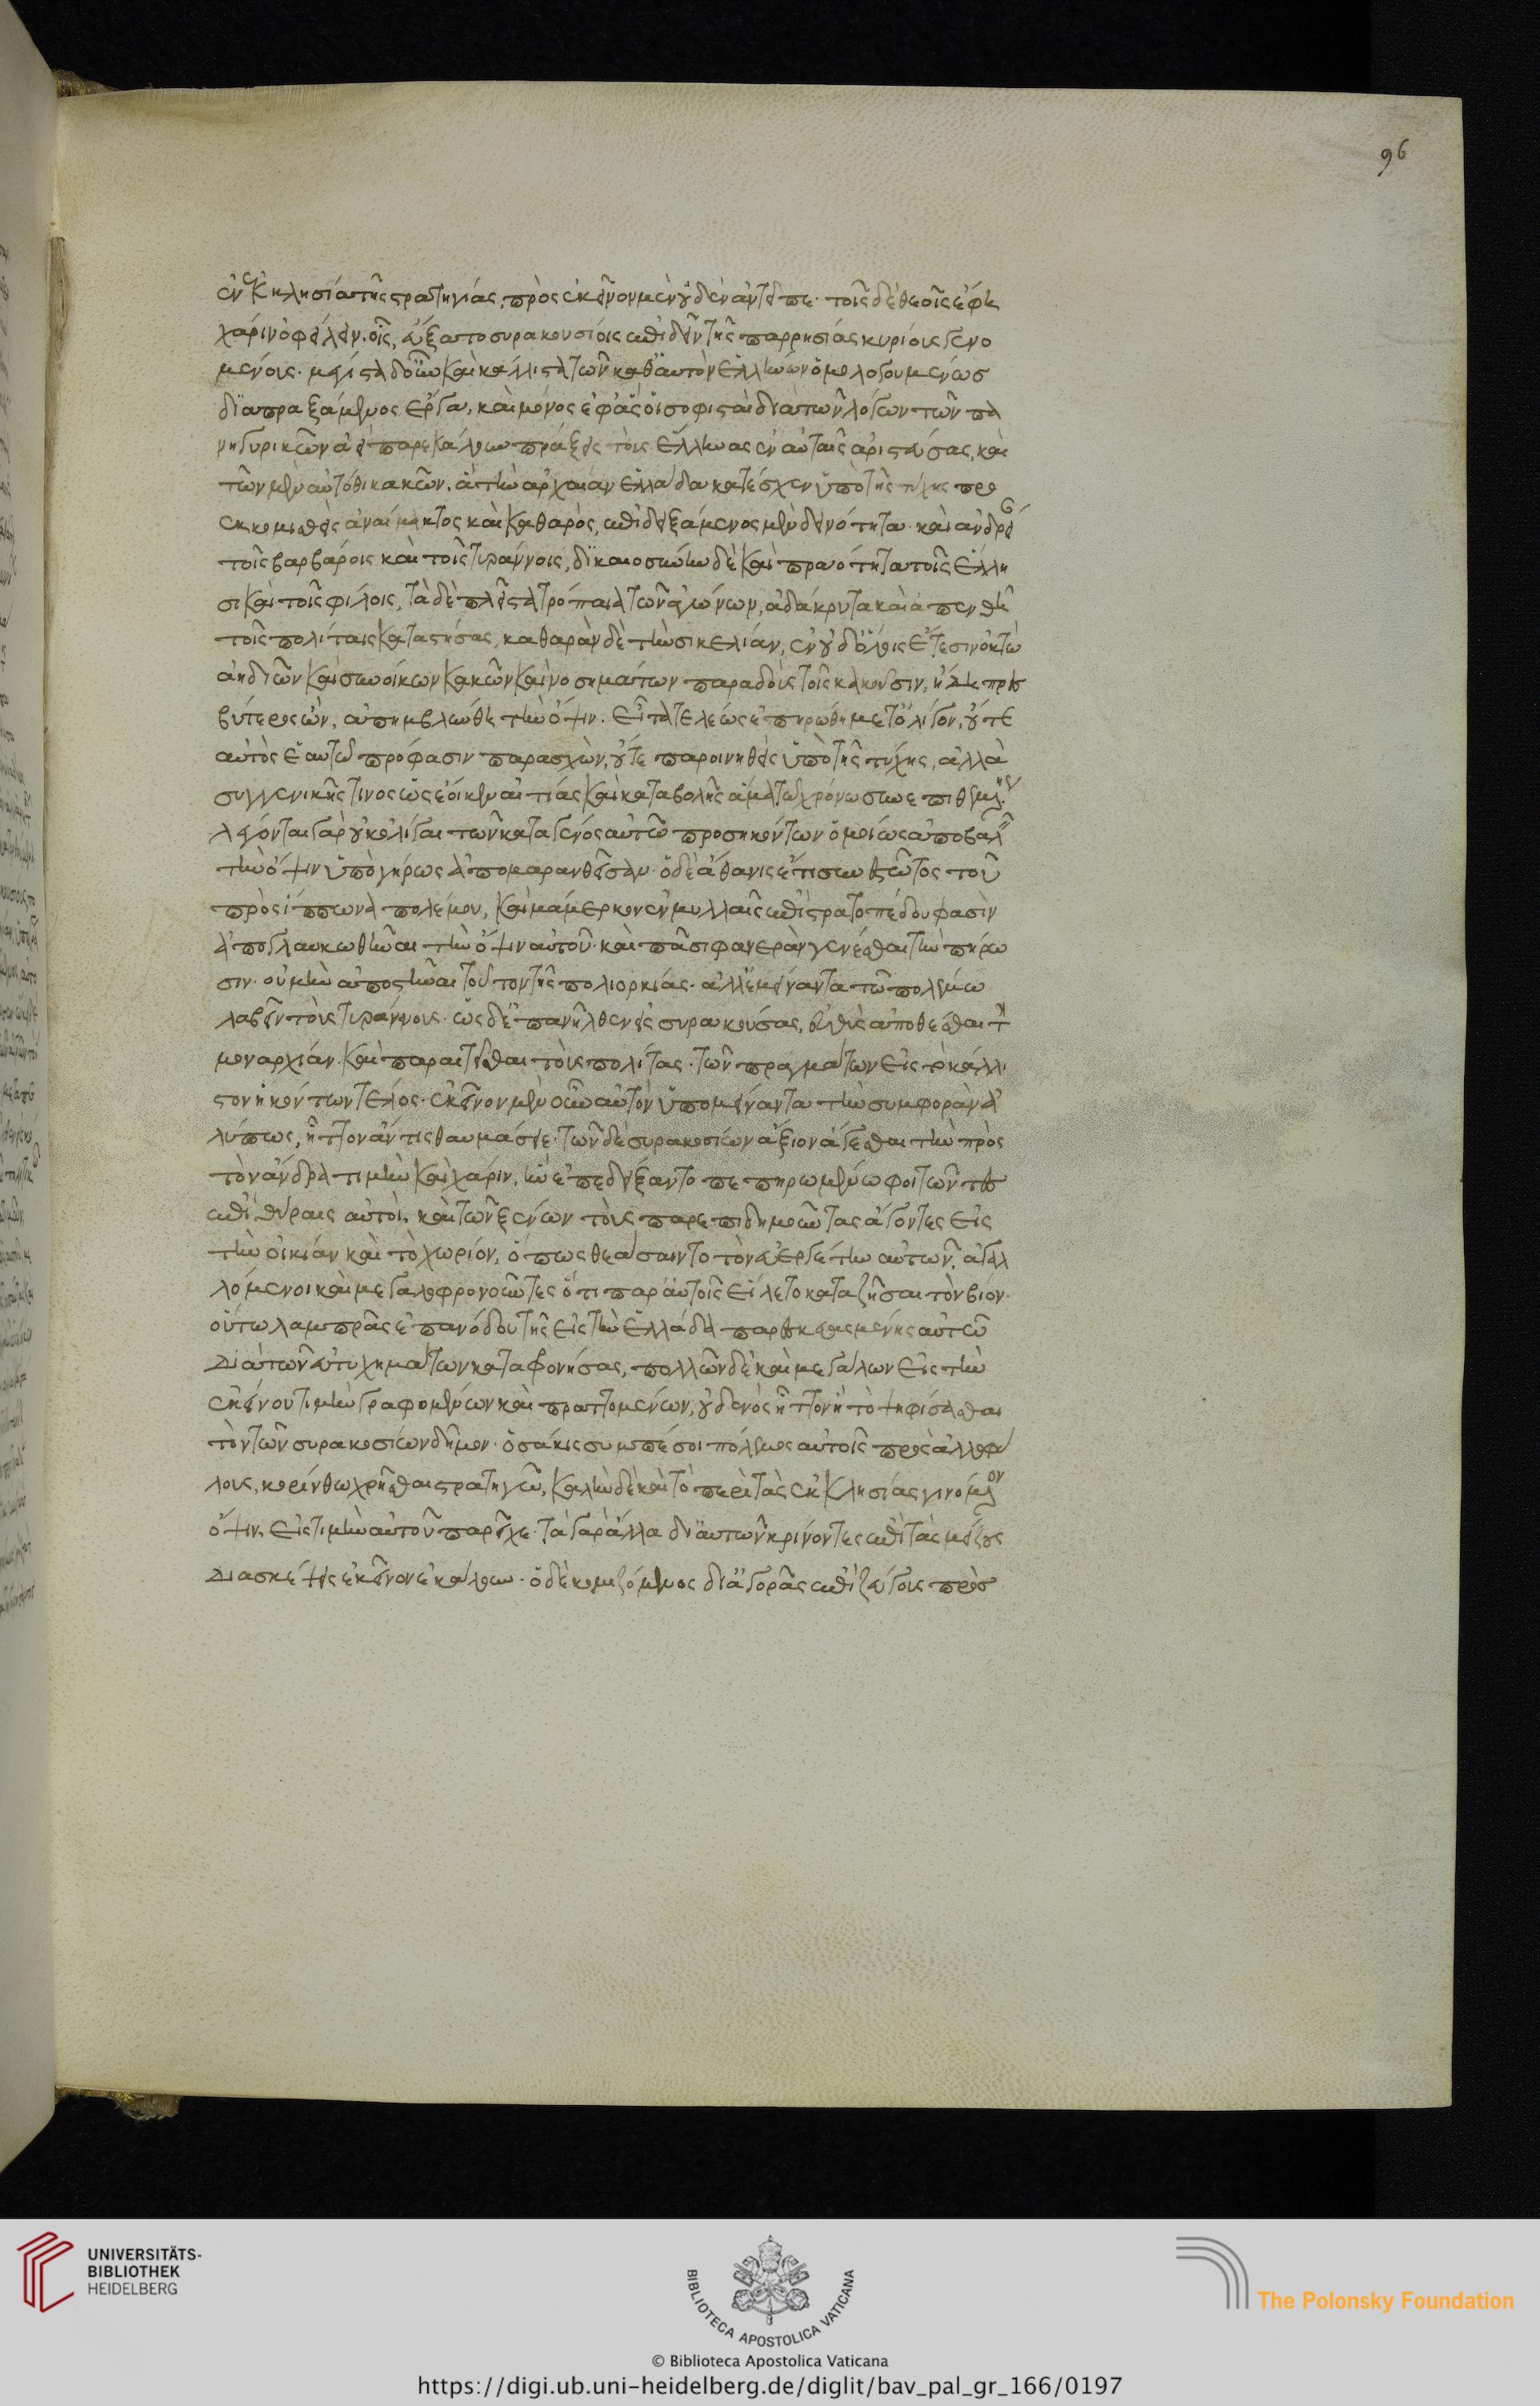 96
ἐν ἐκκλησία τῆς στρατηγίας, πρὸς ἐκεῖνον μὲν οὐδὲν ἀντεῖπε· τοῖς δὲ θεοῖς ἔφη
χάριν ὀφείλειν. οἷς, εὔξατο συρακουσίοις ἐπιδεῖν τῆς παρρησίας κυρίοις γενο
μένοις· μέγιστα δ' οὖν καὶ κάλλιστα τῶν καθ' αὑτὸν ἑλλήνων ὁμολογουμένωσ
διαπραξάμενος ἔργα, καὶ μόνος ἐφ' ἃς οἱ σοφισταὶ διὰ τῶν λόγων τῶν πα
νηγυρικῶν ἀεὶ παρεκάλουν πράξεις τοὺς ἕλληνας ἐν αὐταῖς ἀριστεύσας, καὶ
τῶν μὲν αὐτόθι κακῶν. ἃ τὴν ἀρχαίαν ἑλλάδα κατέσχεν ὑπὸ τῆς τύχης προ
εκκομισθεὶς ἀναίμακτος καὶ καθαρὸς, ἐπιδειξάμενος μὲν δεινότητα· καὶ ἀνδρεί
τοῖς βαρβάροις καὶ τοῖς τυράννοις, δικαιοσύνην δὲ καὶ πραότητα τοῖς ἕλλη
σι καὶ τοῖς φίλοις, τὰ δὲ πλεῖστα τρόπαια τῶν ἀγώνων, ἀδάκρυτα καὶ ἀπενθῆ
τοῖς πολίταις καταστήσας, καθαρὰν δὲ τὴν σικελίαν, ἐν οὐδ' ὅλοις ἔτεσιν ὀκτὼ
ἀηδιῶν καὶ συνοίκων κακῶν καὶ νοσημάτων παραδοὺς τοῖς κατοικοῦσιν, ἤδη πρεσ
βύτερος ὢν, ἀπημβλύνθη τὴν ὄψιν. εἶτα τελέως ἐπηρώθη μετ' ὀλίγον, οὔτε
αὐτὸς ἑαυτῷ πρόφασιν παρασχὼν, οὔτε παροινηθεὶς ὑπὸ τῆς τύχης, ἀλλὰ
συγγενικῆς τινος ὡς ἔοικεν αἰτίας καὶ καταβολῆς ἅμα τῷ χρόνω συνεπιθεμένης
λέγονται γὰρ οὐκ ὀλίγοι τῶν κατὰ γένος αὐτῷ προσηκόντων ὁμοίως ἀποβαλεῖν
τὴν ὄψιν ὑπὸ γήρως ἀπομαρανθεῖσαν· ὁ δὲ ἀθανις ἔτι συνεστῶτος τοῦ
πρὸς ἵππωνα πολέμου, καὶ μάμερκον ἐν μυλλαῖς ἐπὶ στρατοπέδου φασὶν
ἀπογλαυκωθῆναι τὴν ὄψιν αὐτοῦ· καὶ πᾶσι φανερὰν γενέσθαι τὴν πήρω
σιν· οὐ μὴν ἀποστῆναι τοῦτον τῆς πολιορκίας· ἀλλ' ἐμμείναντα τῷ πολέμω
λαβεῖν τοὺς τυράννους· ὡς δὲ ἐπανῆλθεν εἰς συρακούσας, εὐθὺς ἀποθέσθαι τὴν
μοναρχίαν. καὶ παραιτεῖσθαι τοὺς πολίτας· τῶν πραγμάτων εἰς τὸ κάλλι
στον ἡκόντων τέλος· ἐκεῖνον μὲν οὖν αὐτὸν ὑπομείναντα τὴν συμφορὰν ἀ
λύπως, ἧττον ἄν τις θαυμάσειε· τῶν δὲ συρακοσίων ἄξιον ἄγεσθαι τὴν πρὸς
τὸν ἄνδρα τιμὴν καὶ χάριν, ἣν ἐπεδείξαντο πεπηρωμένω φοιτῶντες
ἐπὶ θύραις αὐτοὶ, καὶ τῶν ξένων τοὺς παρεπιδημοῦντας ἄγοντες εἰς
τὴν οἰκίαν καὶ τὸ χωρίον, ὅπως θεάσαιντο τὸν εὐεργέτην αὐτῶν. ἀγαλ
λόμενοι καὶ μεγαλοφρονοῦντες ὅτι παρ' αὐτοῖς εἵλετο καταζῆσαι τὸν βίον·
οὕτω λαμπρᾶς ἐπανόδου τῆς εἰς τὴν ἑλλάδα παρεσκευασμένης αὐτῷ
διὰ τῶν εὐτυχημάτων καταφρονήσας, πολλῶν δὲ καὶ μεγάλων εἰς τὴν
ἐκείνου τιμὴν γραφομένων καὶ πραττομένων, οὐδενὸς ἧττον ἢ τὸ ψηφίσασθαι
τὸν τῶν συρακοσίων δῆμον· ὁσάκις συμπέσοι πόλεμος αὐτοῖς πρὸς ἀλλοφύ
λους, κορίνθω χρῆσθαι στρατηγῷ, καλὴν δὲ καὶ τὸ περὶ τὰς ἐκκλησίας γινόμενον
ὄψιν, εἰς τιμὴν αὐτοῦ παρεῖχε· τὰ γὰρ ἄλλα δι' αὑτῶν κρίνοντες ἐπὶ τὰς μείζους
διασκέψεις ἐκεῖνον ἐκάλουν· ὁ δὲ κομιζόμενος δι' ἀγορᾶς ἐπὶ ζεύγους πρὸσ
UNIVERSITÄTS-
BIBLIOTHEK
HEIDELBERG
BIBLIOTECA APOSTOLICA VATICANA
The Polonsky Foundation
© Biblioteca Apostolica Vaticana
https://digi.ub.uni-heidelberg.de/diglit/bav_pal_gr_166/0197